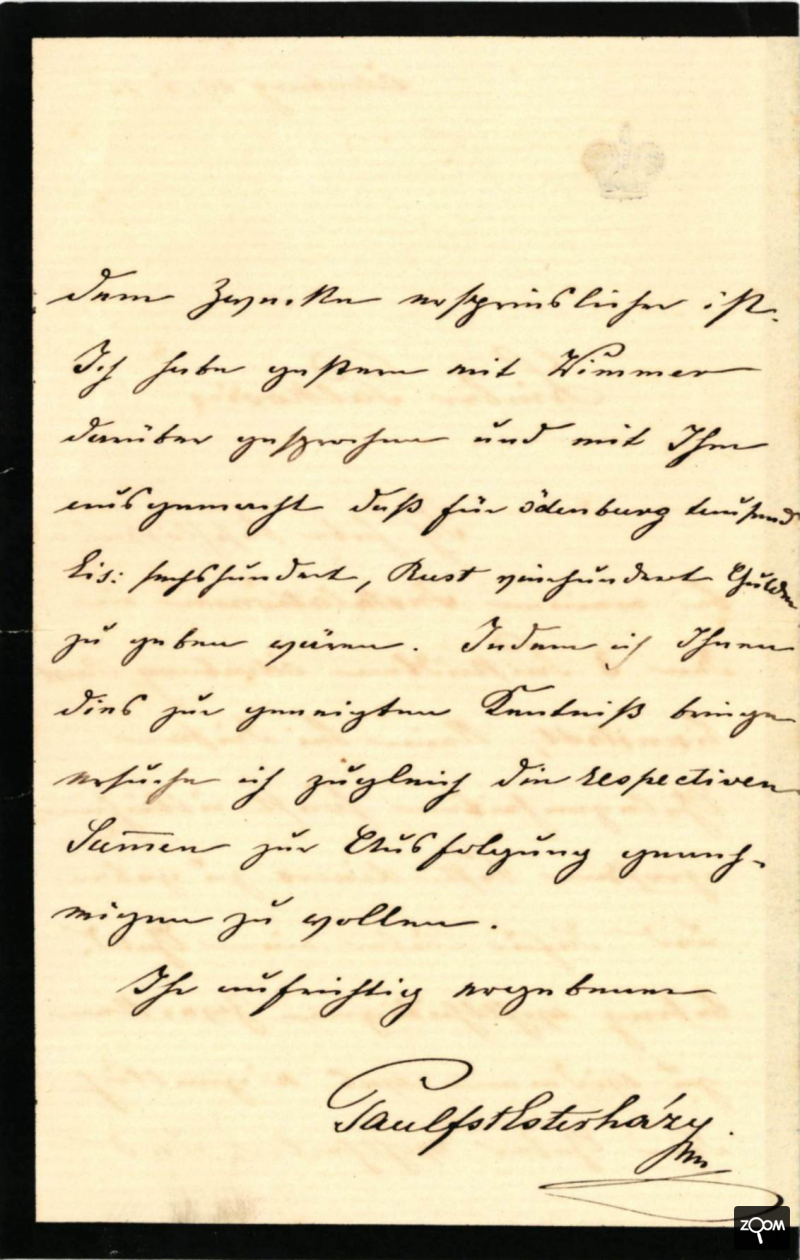 dem Zwecke ersprieslicher ist.
Ich habe gestern mit Wimmer
darüber gesprochen und mit Ihm
ausgemacht daß für Ödenburg tausend
Eis: sechshundert, Rust vierhundert Gulden
zu geben wären. Indem ich Ihnen
dies zur geneigten Kentniß bringe
ersuche ich zugleich die respectiven
Sum̅en zur Ausfolgung geneh-
migen zu wollen.
Ihr aufrichtig ergebener
Paul fst Esterházy
ZOOM